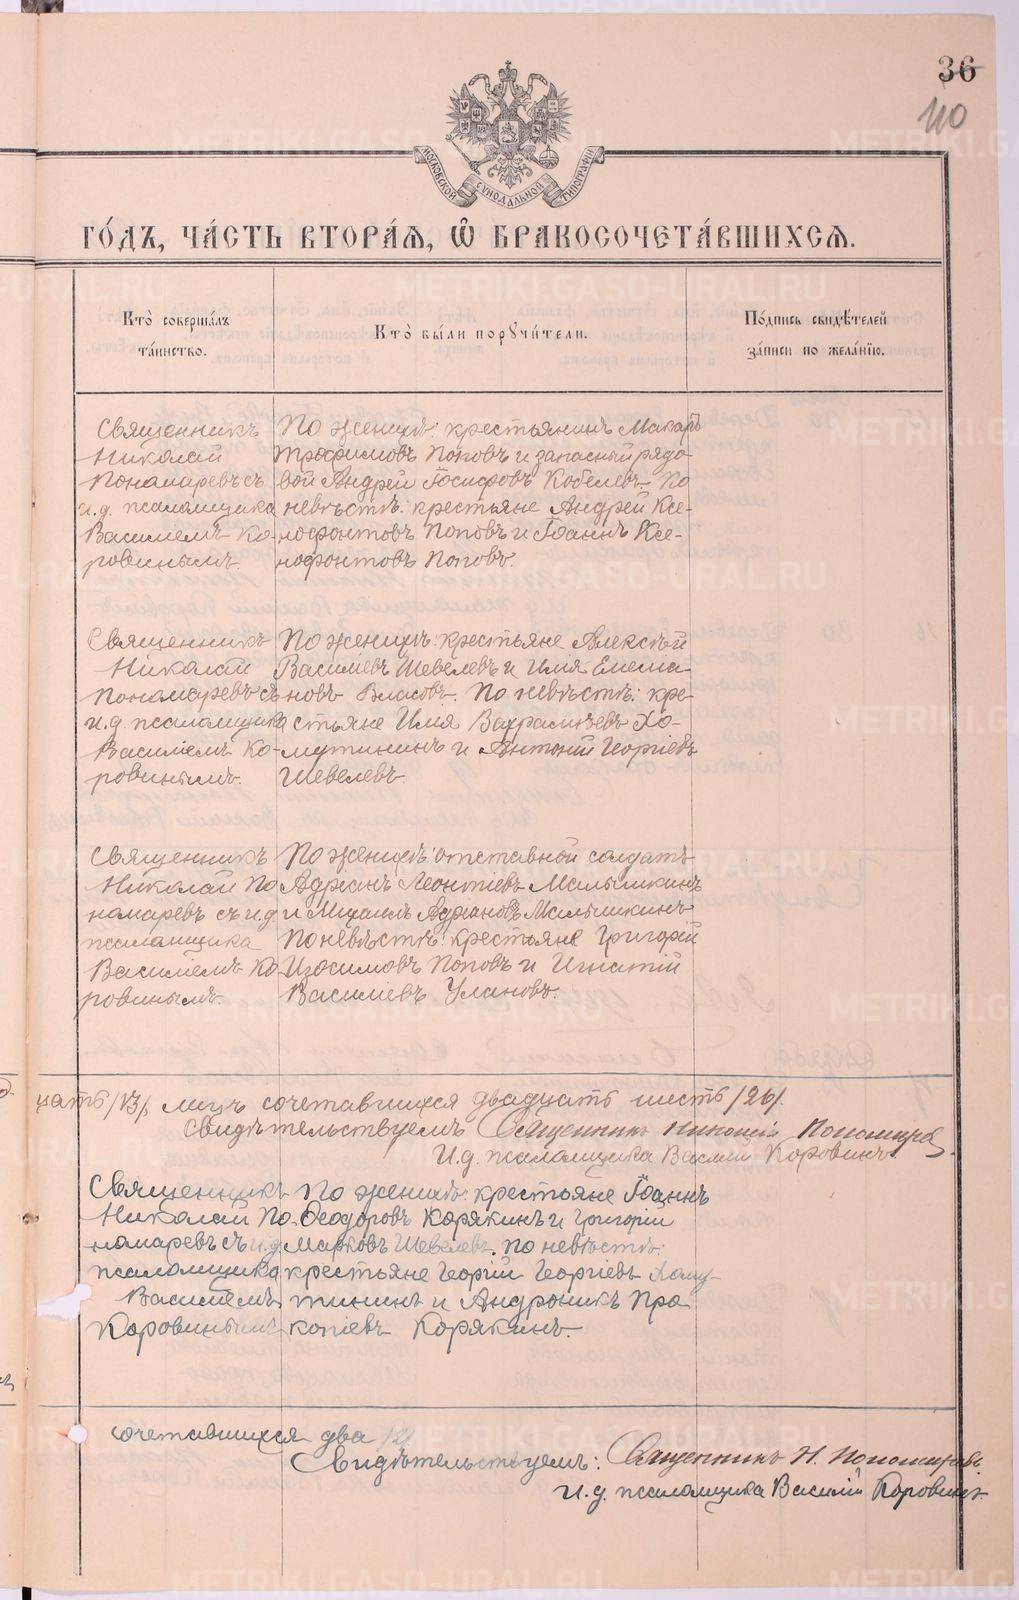 36
110
МОСКОВСКОЙ СѴНОДАЛЬНОЙ ТИПОГРАФІИ
ГО́ДЪ, ЧА́СТЬ ВТОРА́Ѧ, Ѽ БРАКОСОЧЕТА́ВШИХСѦ.
Кто̀ соверша́лъ
та́инство.
Кто̀ бы́ли порꙋчи́тели.
По́дпись свидѣ́телей
за́писи по жела́нїю.
Священникъ
Николай
Пономаревъ съ
и.д. псаломщика
Василіемъ Ко-
ровинымъ.
По женихѣ: крестьянинъ Макаръ
Трофимовъ Поповъ и запасный рядо-
вой Андрей Іосифовъ Кобелевъ. По
невѣстѣ: крестьяне Андрей Ксе-
нофонтовъ Поповъ и Іоаннъ Ксе-
нофонтовъ Поповъ.
Священникъ
Николай
Пономаревъ съ
и.д. псаломщика
Василіемъ Ко-
ровинымъ.
По женихѣ: крестьяне Алексѣй
Василіевъ Шевелевъ и Илія Емелиа-
новъ Власовъ. По невѣстѣ: кре-
стьяне Илія Вахрамѣевъ Хо-
мутининъ и Антоній Георгіевъ
Шевелевъ.
Священникъ
Николай По
номаревъ съ и.д
псаломщика
Василіемъ Ко
ровинымъ.
По женихѣ: отставной солдатъ
Адріанъ Леонтіевъ Малышкинъ
и Михаилъ Адріановъ Малышкинъ
По невѣстѣ: крестьяне Григорій
Изосимовъ Поповъ и Игнатій
Василіевъ Улановъ.
цать /13/, лицъ сочетавшихся двадцать шесть /26/.
Свидѣтельствуемъ Священникъ Николай Пономарев
И.д. псаломщика Василій Коровинъ.
Священникъ
Николай По
номаревъ съ и.д
псаломщика
Василіемъ
Коровинымъ
По женихѣ: крестьяне Іоаннъ
Ѳеодоровъ Корякинъ и Григорій
Марковъ Шевелевъ. По невѣстѣ:
крестьяне Георгій Георгіевъ Хому-
тининъ и Андроникъ Про
копіевъ Корякинъ.
сочетавшихся два /2/
Свидѣтельствуемъ: Священникъ Н. Пономаревъ
И.д. псаломщика Василій Коровинъ.
METRIKI.GASO-URAL.RU